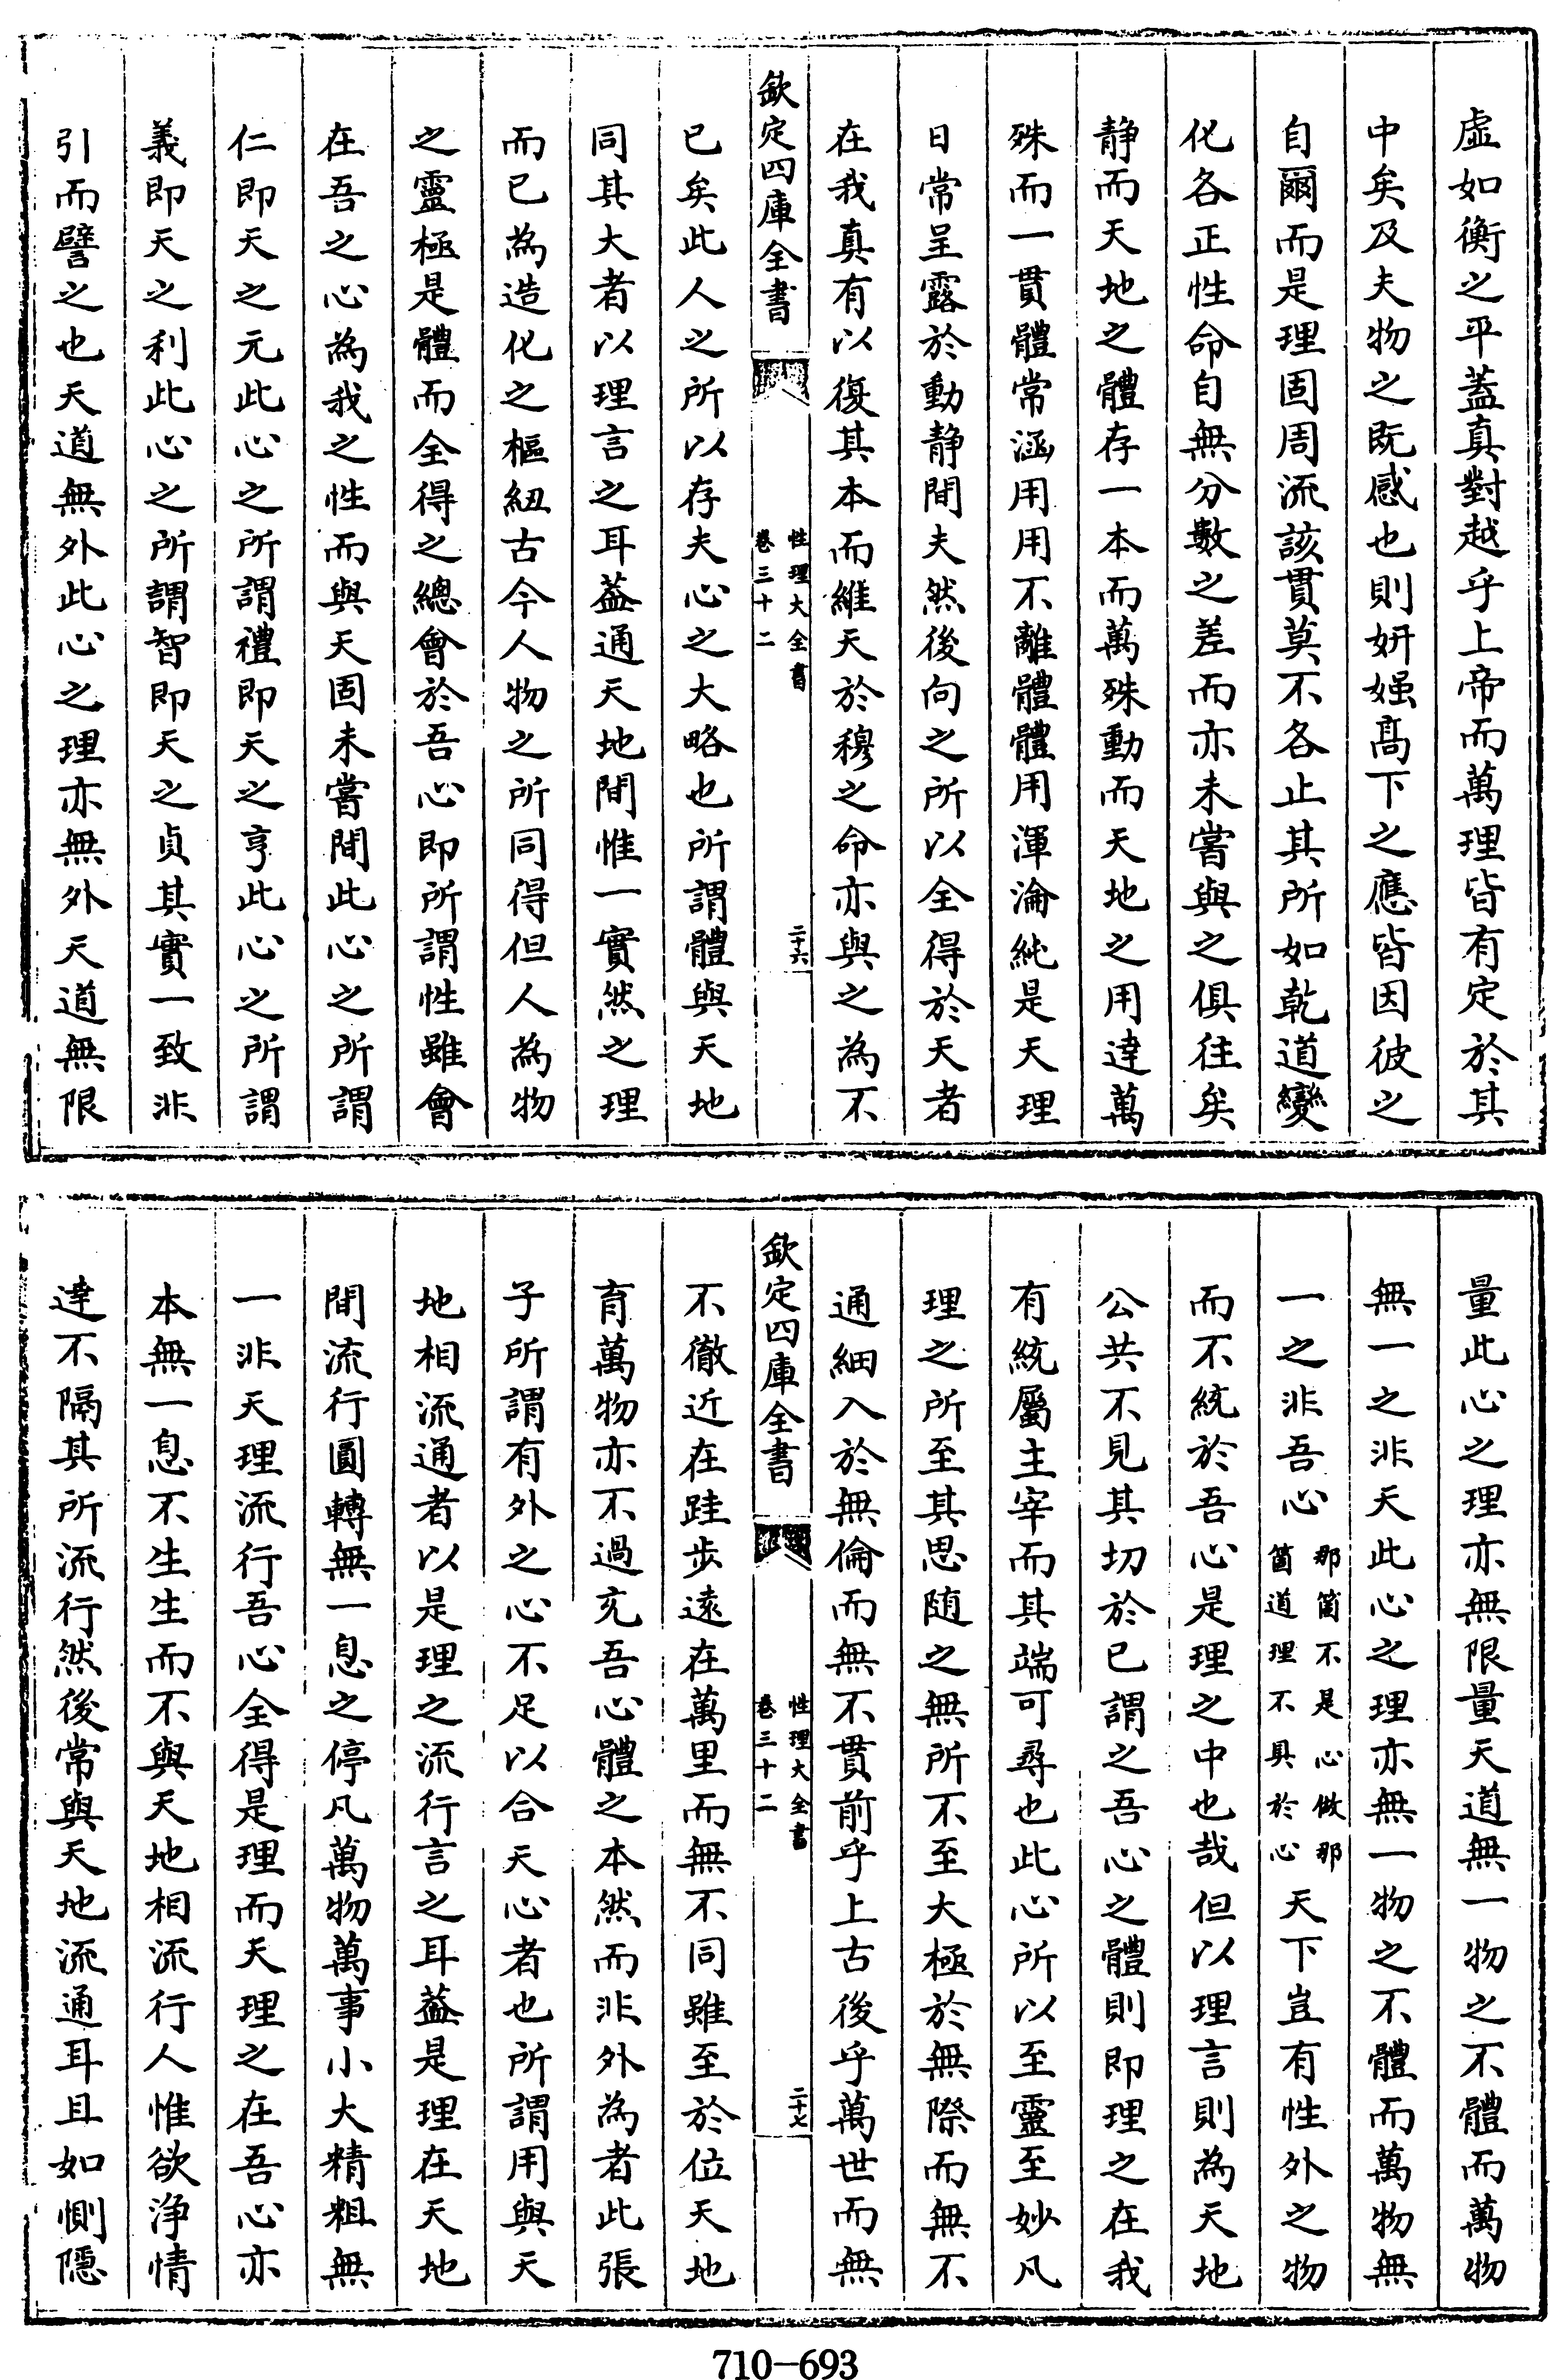 虛如衡之平蓋真對越乎上帝而萬理皆有定於其
中矣及夫物之既感也則妍媸髙下之應皆因彼之
自爾而是理固周流該貫莫不各止其所如乾道變
化各正性命自無分數之差而亦未嘗與之俱往矣
静而天地之體存一本而萬殊動而天地之用達萬
殊而一貫體常涵用用不離體體用渾淪純是天理
日常呈露於動静間夫然後向之所以全得於天者
在我真有以復其本而維天於穆之命亦與之為不
欽定四庫全書
性理大全書
卷三十二
二十六
已矣此人之所以存夫心之大略也所謂體與天地
同其大者以理言之耳葢通天地間惟一實然之理
而已為造化之樞紐古今人物之所同得但人為物
之靈極是體而全得之總㑹於吾心即所謂性雖㑹
在吾之心為我之性而與天固未嘗間此心之所謂
仁即天之元此心之所謂禮即天之亨此心之所謂
義即天之利此心之所謂智即天之貞其實一致非
引而譬之也天道無外此心之理亦無外天道無限
量此心之理亦無限量天道無一物之不體而萬物
無一之非天此心之理亦無一物之不體而萬物無
一之非吾心那箇不是心做那箇道理不具於心天下豈有性外之物
而不統於吾心是理之中也哉但以理言則為天地
公共不見其切於已謂之吾心之體則即理之在我
有統屬主宰而其端可尋也此心所以至靈至妙凡
理之所至其思随之無所不至大極於無際而無不
通細入於無倫而無不貫前乎上古後乎萬世而無
欽定四庫全書
性理大全書
卷三十二
二十七
不徹近在跬步遠在萬里而無不同雖至於位天地
育萬物亦不過充吾心體之本然而非外為者此張
子所謂有外之心不足以合天心者也所謂用與天
地相流通者以是理之流行言之耳葢是理在天地
間流行圓轉無一息之停凡萬物萬事小大精粗無
一非天理流行吾心全得是理而天理之在吾心亦
本無一息不生生而不與天地相流行人惟欲浄情
達不隔其所流行然後常與天地流通耳且如惻隠
710-693